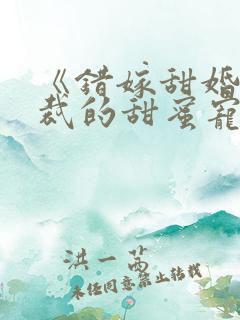 《错嫁甜婚
裁的甜蜜宠
洪一茜
未经同意禁止转载